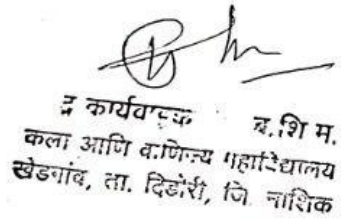 कार्यवाहक म.शि.म.
कला आणि वाणिज्य महाविद्यालय
खेडगांव, ता. दिंडोरी, जि. नाशिक